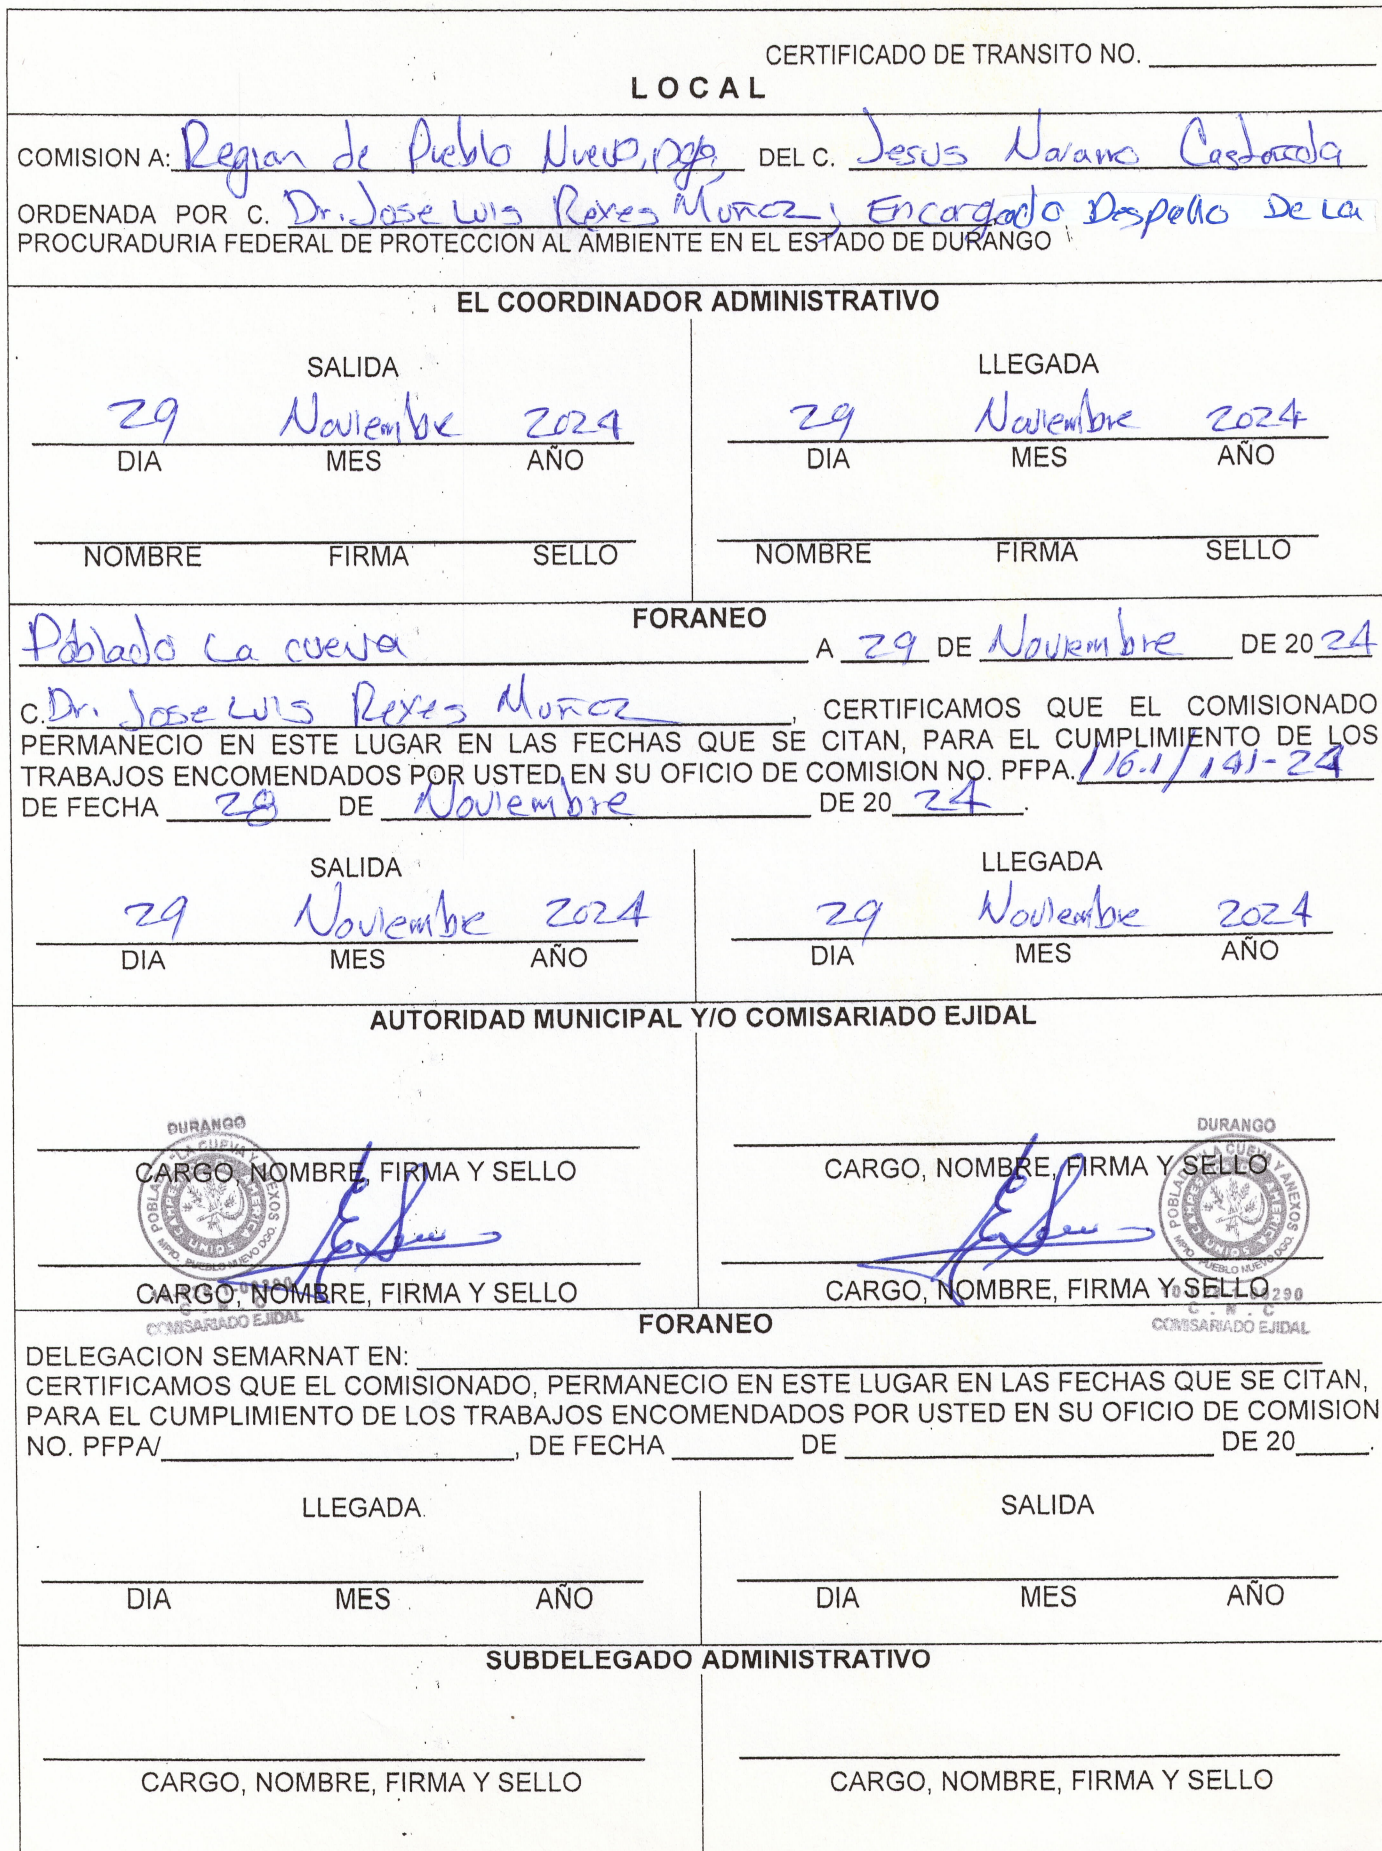 CERTIFICADO DE TRANSITO NO.
LOCAL
COMISION A: Region de Pueblo Nuevo, Dgo, DEL C. Jesus Navarro Castañeda
ORDENADA POR C. Dr. Jose Luis Reyes Muñoz, Encargado Despacho De La
PROCURADURIA FEDERAL DE PROTECCION AL AMBIENTE EN EL ESTADO DE DURANGO
EL COORDINADOR ADMINISTRATIVO
SALIDA LLEGADA
29 Noviembre 2024 29 Noviembre 2024
DIA MES AÑO DIA MES AÑO
NOMBRE FIRMA SELLO NOMBRE FIRMA SELLO
FORANEO
Poblado La cueva A 29 DE Noviembre DE 20 24
C. Dr. Jose Luis Reyes Muñoz, CERTIFICAMOS QUE EL COMISIONADO
PERMANECIO EN ESTE LUGAR EN LAS FECHAS QUE SE CITAN, PARA EL CUMPLIMIENTO DE LOS
TRABAJOS ENCOMENDADOS POR USTED EN SU OFICIO DE COMISION NO. PFPA./16.1/141-24
DE FECHA 28 DE Noviembre DE 20 24.
SALIDA LLEGADA
29 Noviembre 2024 29 Noviembre 2024
DIA MES AÑO DIA MES AÑO
AUTORIDAD MUNICIPAL Y/O COMISARIADO EJIDAL
DURANGO DURANGO
CARGO, NOMBRE, FIRMA Y SELLO CARGO, NOMBRE, FIRMA Y SELLO
POBLADO "LA CUEVA Y ANEXOS POBLADO "LA CUEVA Y ANEXOS
MPIO. PUEBLO NUEVO DGO. MPIO. PUEBLO NUEVO DGO.
CARGO, NOMBRE, FIRMA Y SELLO CARGO, NOMBRE, FIRMA Y SELLO
C.N.C C.N.C
COMISARIADO EJIDAL COMISARIADO EJIDAL
FORANEO
DELEGACION SEMARNAT EN:
CERTIFICAMOS QUE EL COMISIONADO, PERMANECIO EN ESTE LUGAR EN LAS FECHAS QUE SE CITAN,
PARA EL CUMPLIMIENTO DE LOS TRABAJOS ENCOMENDADOS POR USTED EN SU OFICIO DE COMISION
NO. PFPA/ , DE FECHA DE DE 20 .
LLEGADA SALIDA
DIA MES AÑO DIA MES AÑO
SUBDELEGADO ADMINISTRATIVO
CARGO, NOMBRE, FIRMA Y SELLO CARGO, NOMBRE, FIRMA Y SELLO